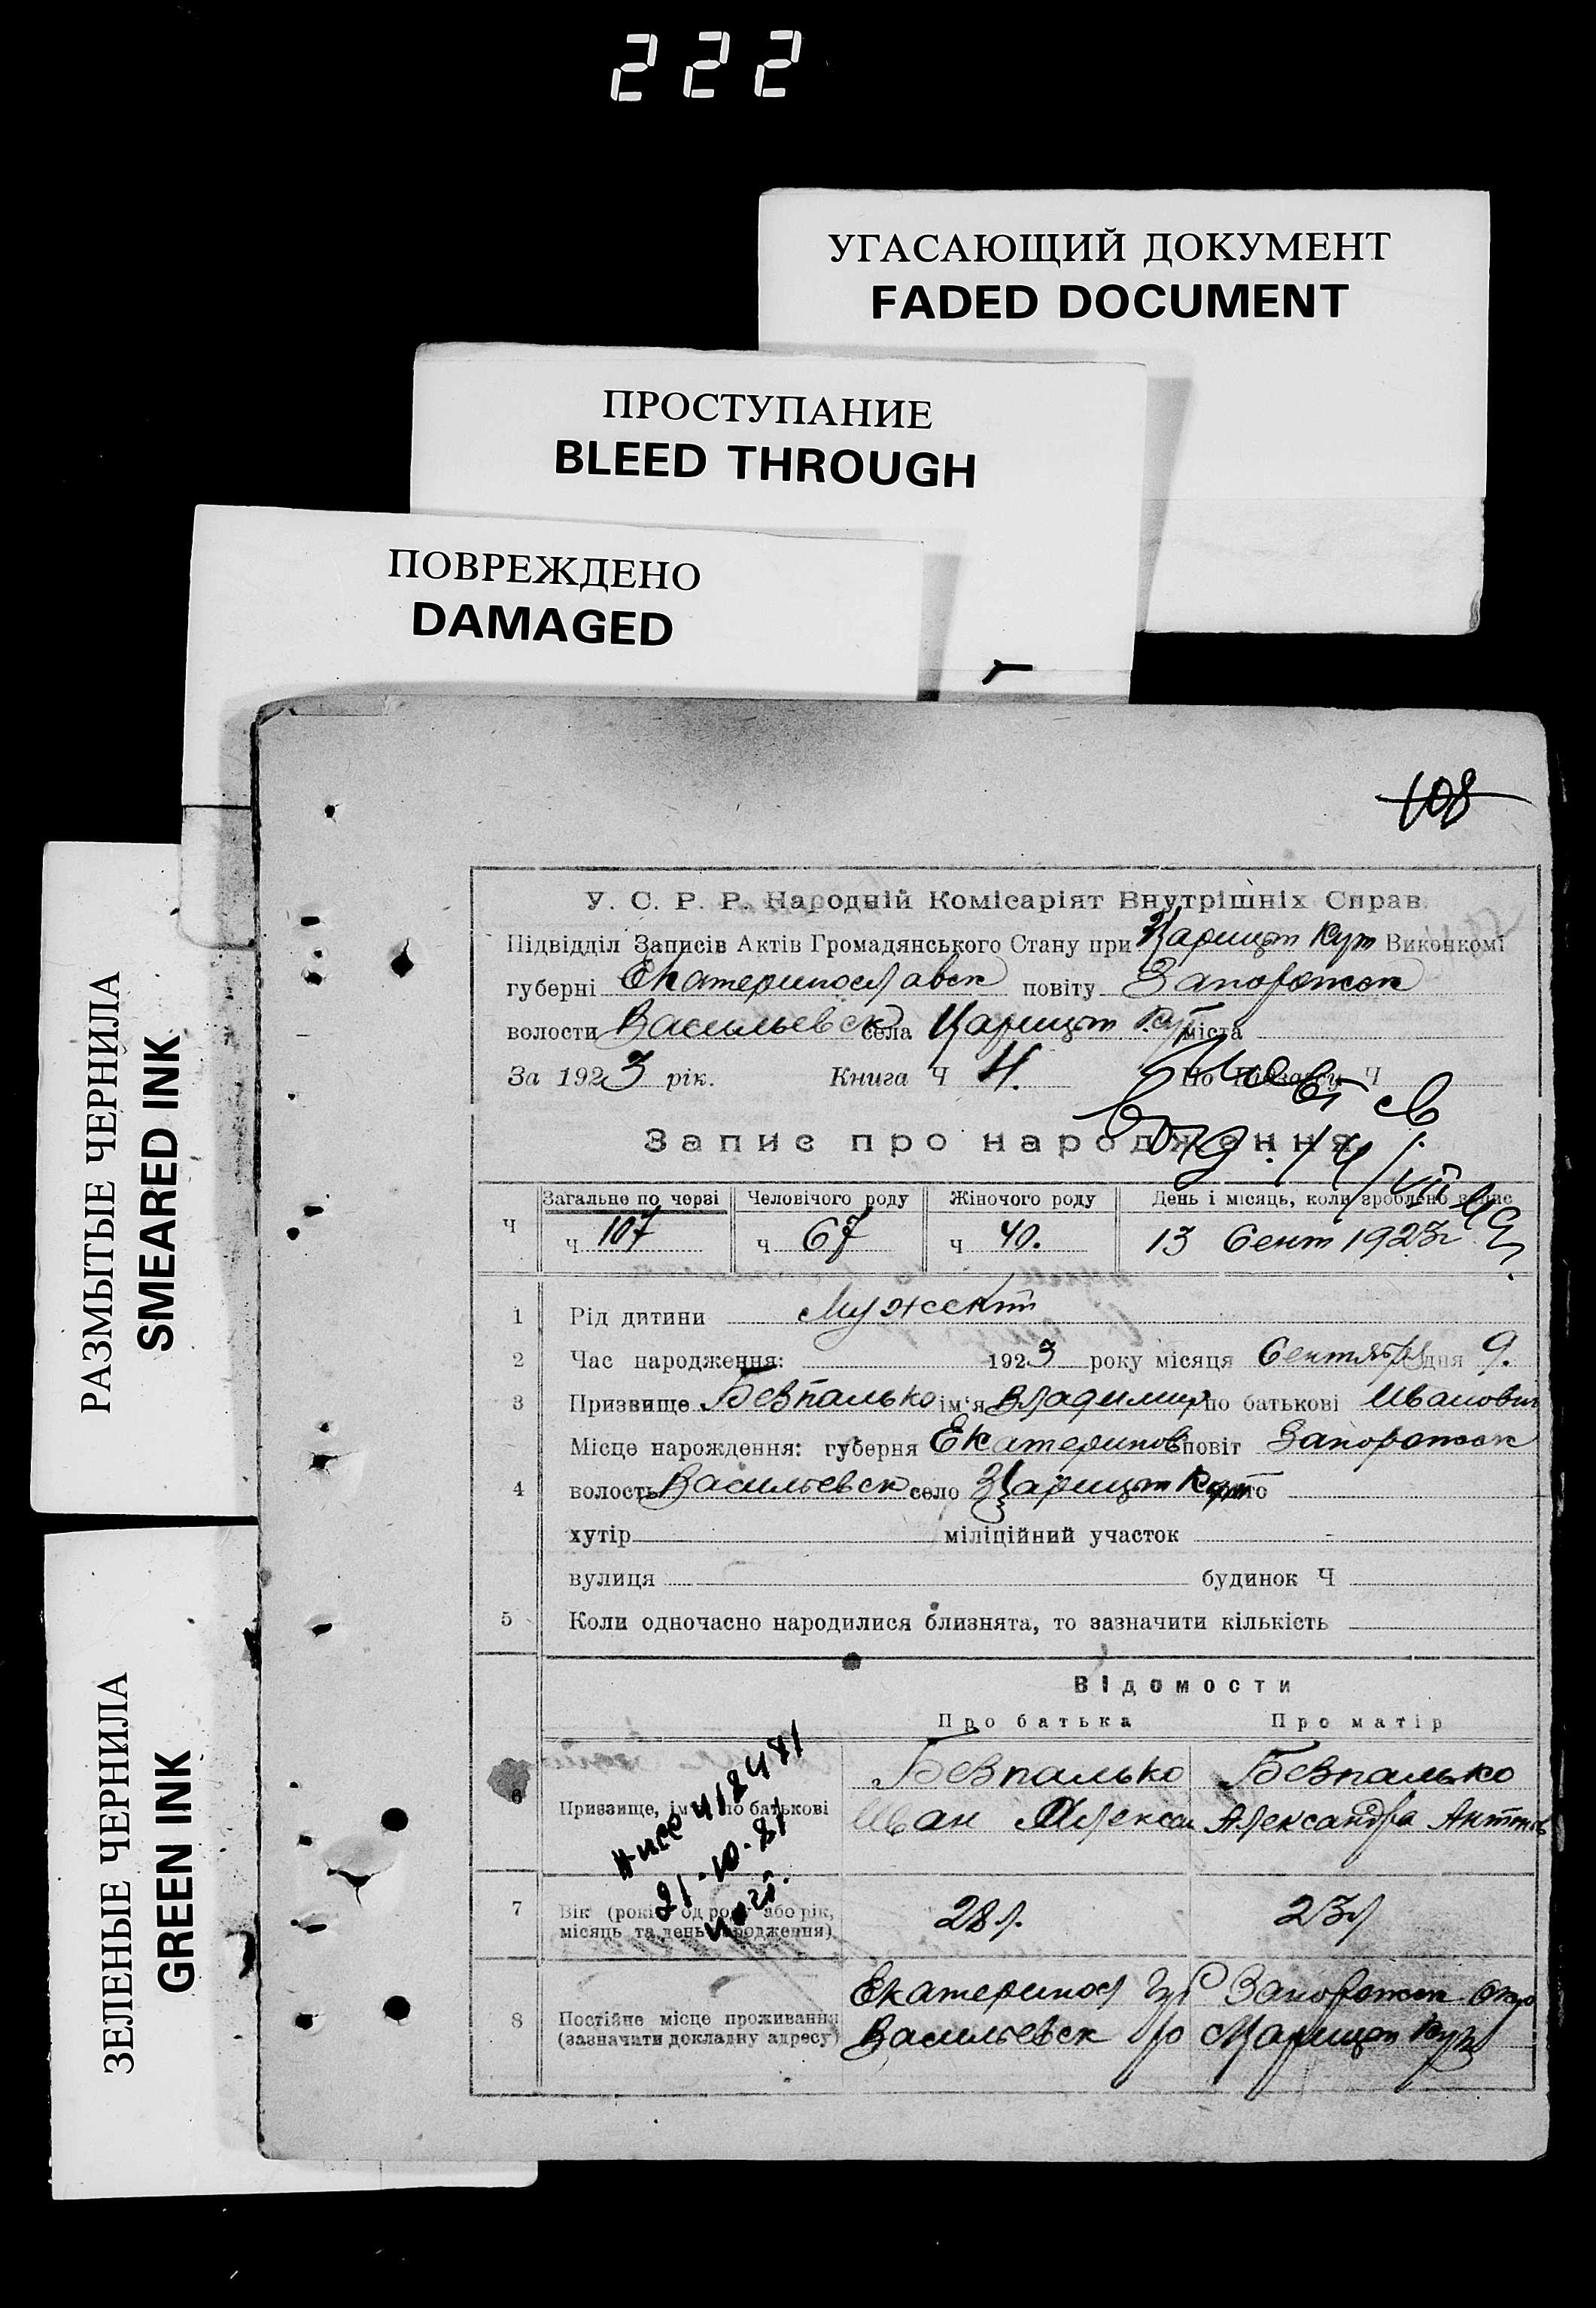 222
УГАСАЮЩИЙ ДОКУМЕНТ
FADED DOCUMENT
ПРОСТУПАНИЕ
BLEED THROUGH
ПОВРЕЖДЕНО
DAMAGED
РАЗМЫТЫЕ ЧЕРНИЛА
SMEARED INK
ЗЕЛЕНЫЕ ЧЕРНИЛА
GREEN INK
108
У. С. Р. Р. Народній Комісаріят Внутрішніх Справ.
Підвідділ Записів Актів Громадянського Стану при Царицын Кут Виконкомі
губерні Екатеринославск повіту Запорожск
волости Васильевск села Царицын Кут міста
За 1923 рік. Книга Ч 4. По Ч
Запис про народження
Загальне по черзі Человічого роду Жіночого роду День і місяць, коли зроблено запис
Ч ч 107 ч 67 ч 40. 13 Сент 1923г
1 Рід дитини Мужеск
2 Час народження: 1923 року місяця Сентября дня 9.
3 Призвище Безпалько ім'я Владимир по батькові Иванович
Місце народження: губерня Екатеринов повіт Запорожск
4 волость Васильевск село Царицын Кут місто
хутір міліційний участок
вулиця будинок Ч
5 Коли одночасно народилися близнята, то зазначити кількість
Відомости
Про батька Про матір
6 Призвище, ім'я по батькові Безпалько Безпалько
Иван Алекса Александра Антонов
418481
21-10-81
7 Вік (рокі од роду або рік, місяць та день народження) 28 л. 23 л
8 Постійне місце проживання (зазначити докладну адресу) Екатеринос губ Запорожск окр
Васильевск р-о с Царицын Кут